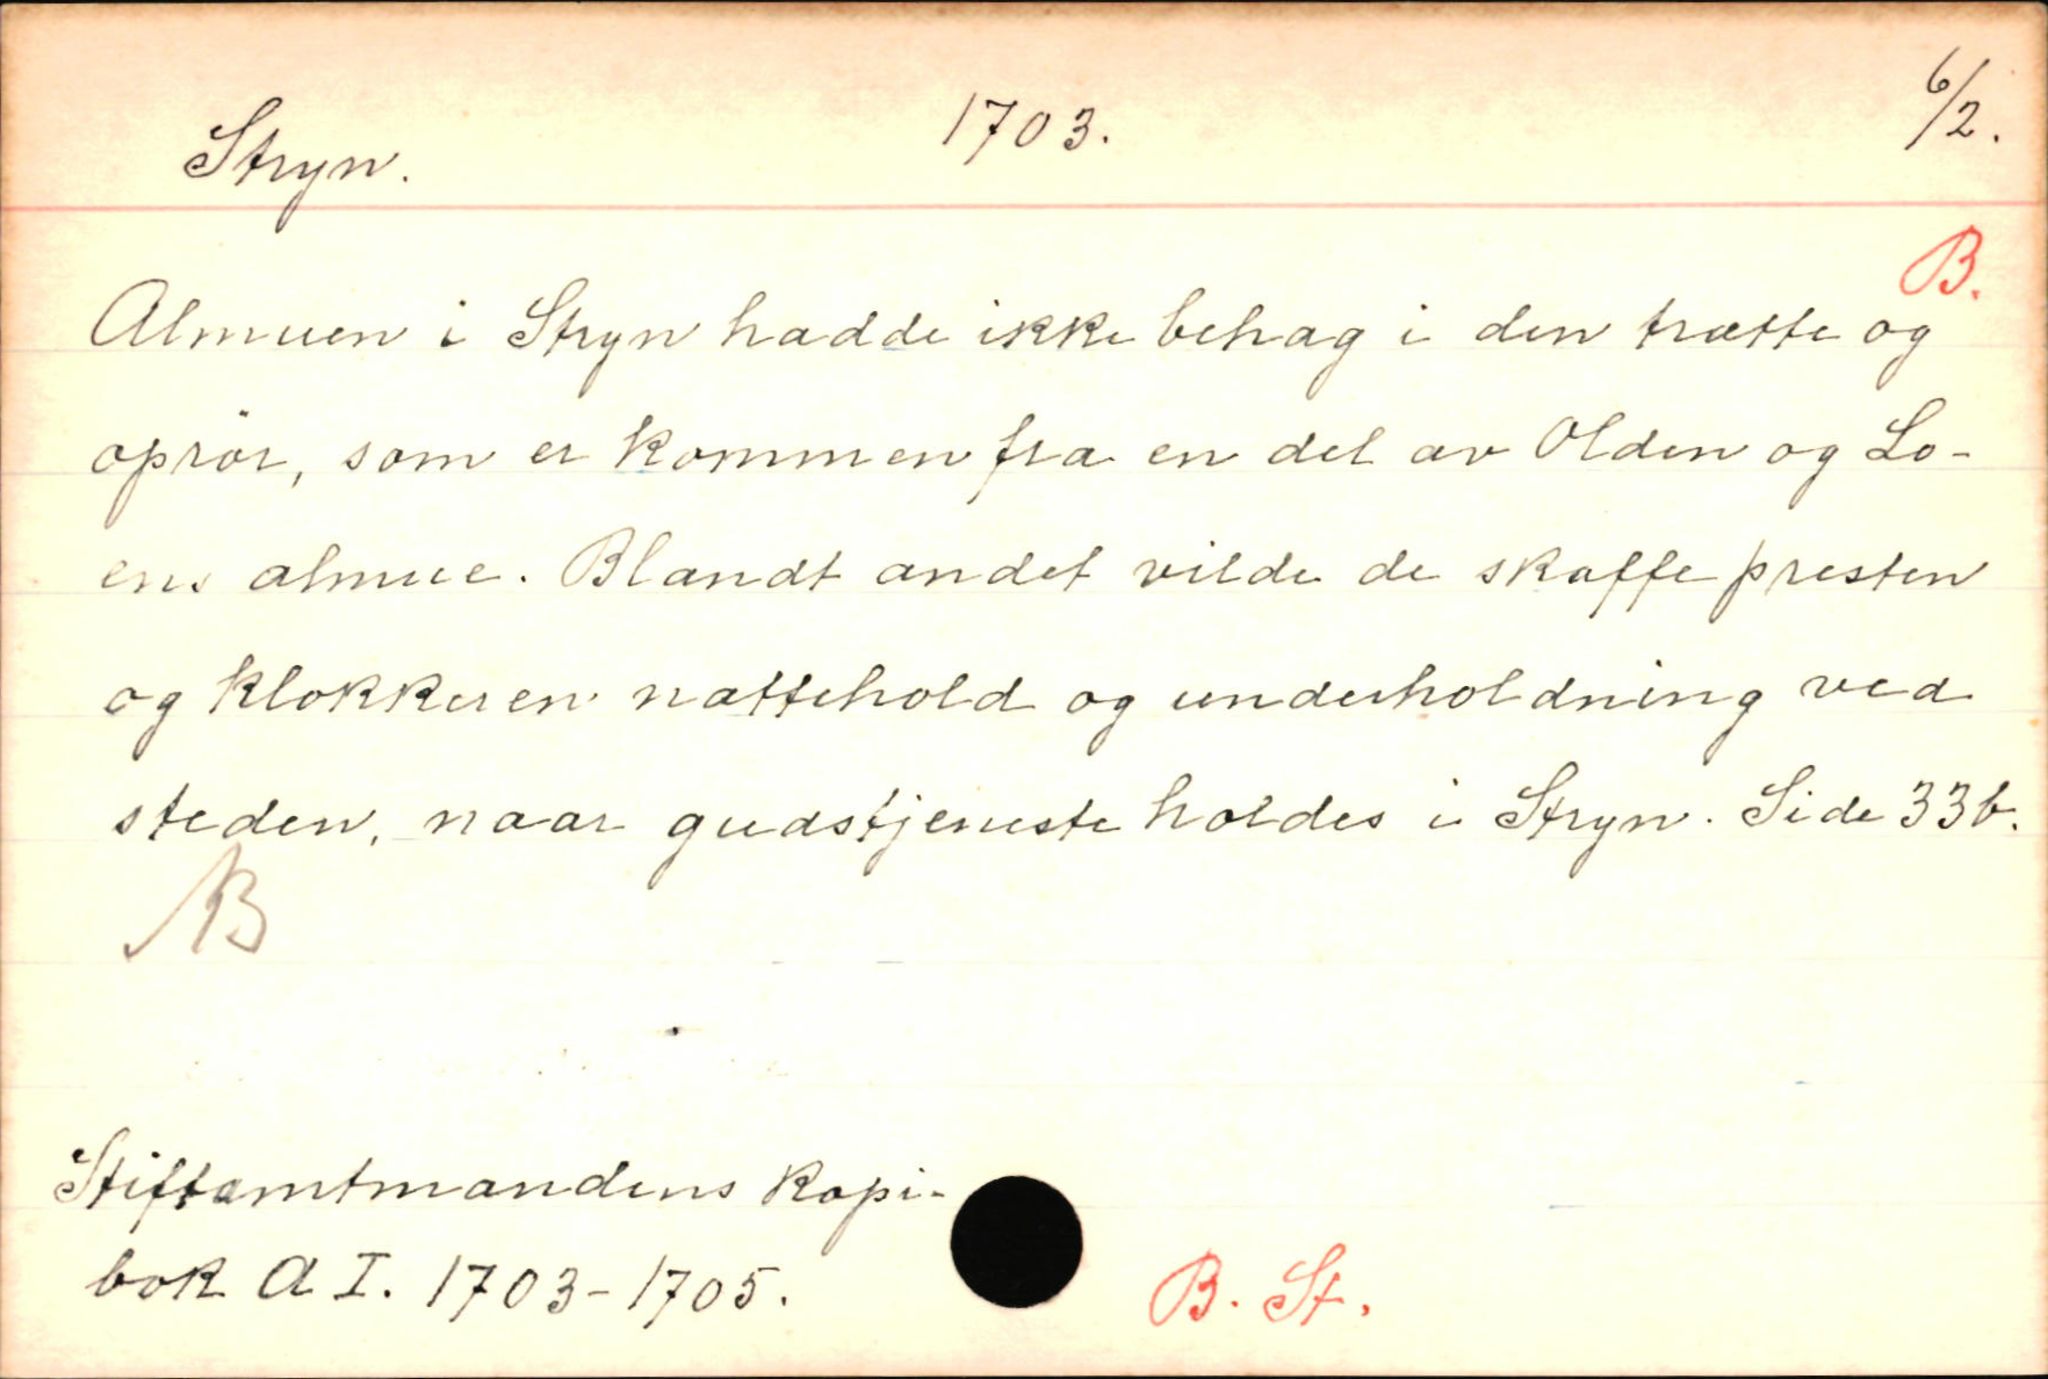 Stryn. 1703. 6/2.
B.
Almuen i Stryn hadde ikke behag i den trætte og
oprör, som er kommen fra en del av Olden og Lo-
ens almue. Blandt andet vilde de skaffe presten
og klokkeren nattehold og underholdning ved
steden, naar gudstjeneste holdes i Stryn. Side 33b.
NB
Stiftamtmandens kopi-
bok A I. 1703-1705.
B. St.